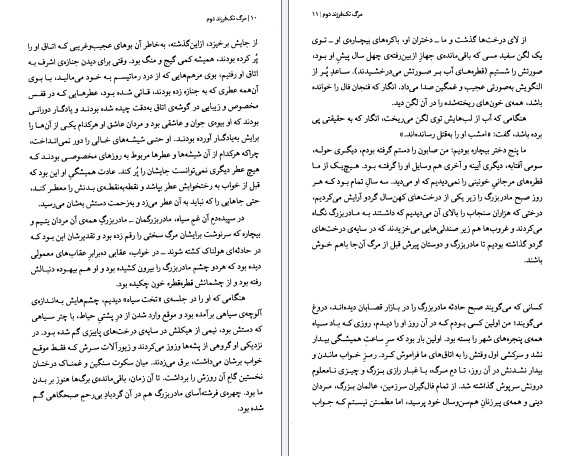 ۱۰ | مرگ تک‌فرزند دوم
از جایش برخیزد، ازاین‌گذشته، به‌خاطر آن بوهای عجیب‌وغریبی که اتاق او را
پُر کرده بودند، همیشه کمی گیج و منگ بود. وقتی برای دیدن جنازه‌ی اشرف به
اتاق او رفتیم، بوی مرهم‌هایی که از درد رماتیسم به خود می‌مالید، با بوی
آن‌همه عطری که به جنازه زده بودند، قاتی شده بود. عطرهایی که در قفس
مخصوص و زیبایی در گوشه‌ی اتاق به‌دقت چیده شده بودند و یادگار دورانی
بودند که او بیوه‌ی جوان و عاشقی بود و مردان عاشق او هرکدام یکی از آن‌ها را
برایش به‌یادگار آورده بودند. او حتی شیشه‌های خالی را دور نمی‌انداخت،
چراکه هرکدام از آن شیشه‌ها و عطرها مربوط به روزهای مخصوصی بودند که
هیچ عطر دیگری نمی‌توانست جایشان را پُر کند. عادت همیشگی او این بود که
قبل از خواب به رختخوابش عطر بپاشد و نقطه‌به‌نقطه‌ی بدنش را معطر کند،
حتی جاهایی را که نباید به آن عطر می‌زد و به‌زحمت دستش به‌شان می‌رسید.
در سپیده‌دمِ آن غمِ سیاه، مادربزرگمان ــ مادربزرگِ همه‌ی آن مردان یتیم و
بیچاره که سرنوشت برایشان مرگ سختی را رقم زده بود و تقدیرشان این بود که
در حادثه‌ای هولناک کشته شوند ــ در خواب، عقابی ده‌برابرِ عقاب‌های معمولی
دیده بود که هردو چشم مادربزرگ را بیرون کشیده بود و او هم بیهوده دنبالش
رفته بود و از چشمانش قطره‌قطره خون چکیده بود.
هنگامی که او را در جلسه‌ی «تخت سیاه» دیدیم، چشم‌هایش به‌اندازه‌ی
آلوچه‌ی سیاهی برآمده بود و موقع وارد شدن از درِ پشتیِ حیاط، با چتر سیاهی
که دستش بود، نیمی از هیکلش در سایه‌ی درخت‌های پاییزی گم شده بود. در
نزدیکی او گروهی از پشه‌ها وزوز می‌کردند و زیورآلات سرش که فقط موقع
خواب برشان می‌داشت، برق می‌زدند. میان سکوت سنگین و غمناک درختان
نخستین گام آن روزش را برداشت. تا آن زمان، باقی‌مانده‌ی برگ‌ها هنوز بر بدن
ما بود. چهره‌ی فرشته‌آسای مادربزرگ هم در آن گردبادِ بی‌رحمِ صبحگاهی گم
شده بود.
مرگ تک‌فرزند دوم | ۱۱
از لای درخت‌ها گذشت و ما ــ دختران او، باکره‌های بیچاره‌ی او ــ توی
یک لگن سفید مسی که باقی‌مانده‌ی جهازِ ازبین‌رفته‌ی چهل سال پیشِ او بود،
صورتش را شستیم (قطره‌های آب بر صورتش می‌درخشیدند). ساعدِ پُر از
النگویش به‌صورتی عجیب و غمگین صدا می‌داد. انگار که فنجان فال را خوانده
باشد، همه‌ی خون‌های ریخته‌شده را در آن لگن دید.
هنگامی که آب از لب‌هایش توی لگن می‌ریخت، انگار که به حقیقتی پی
برده باشد، گفت: «امشب او را به‌قتل رسانده‌اند.»
ما پنج دختر بیچاره بودیم: من صابون را دستم گرفته بودم، دیگری حوله،
سومی آفتابه، دیگری آیینه و آخری هم وسایل او را گرفته بود. هیچ‌یک از ما
قطره‌های مرجانیِ خونینی را نمی‌دیدیم که او می‌دید. سه سالِ تمام بود که هر
روز صبح مادربزرگ را زیر یکی از درخت‌های کهن‌سال گردو آرایش می‌کردیم،
درختی که هزاران سنجاب را بالای آن می‌دیدیم که داشتند به مادربزرگ نگاه
می‌کردند و غروب‌ها هم زیر صندلی‌هایی می‌خزیدند که در سایه‌ی درخت‌های
گردو گذاشته بودیم تا مادربزرگ و دوستان پیرش قبل از مرگ آن‌جا باهم خوش
باشند.
کسانی که می‌گویند صبحِ حادثه مادربزرگ را در بازار قصابان دیده‌اند، دروغ
می‌گویند؛ من اولین کسی بودم که در آن روز او را دیدم، روزی که باد سیاه
همه‌ی پنجره‌های شهر را بسته بود. اولین بار بود که سرِ ساعتِ همیشگی بیدار
نشد و سرکشیِ اول وقتش را به اتاق‌های ما فراموش کرد. رمزِ خواب ماندن و
بیدار نشدنش در آن روز، تا دمِ مرگ، با غبار رازی بزرگ و چیزی نامعلوم
درونش سرپوش گذاشته شد. از تمام فال‌گیران سرزمین، عالمان بزرگ، مردان
دینی و همه‌ی پیرزنانِ هم‌سن‌وسال خود پرسید، اما مطمئن نیستم که جواب